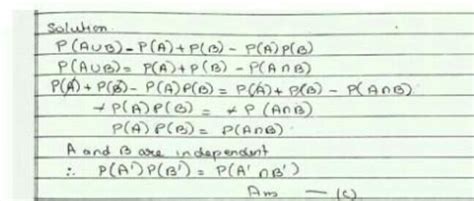 Solution.
P(A∪B) = P(A) + P(B) - P(A)P(B)
P(A∪B) = P(A) + P(B) - P(A∩B)
P(A) + P(B) - P(A)P(B) = P(A) + P(B) - P(A∩B)
≁ P(A)P(B) = ≁ P(A∩B)
P(A)P(B) = P(A∩B)
A and B are independent
∴ P(A')P(B') = P(A'∩B')
Ans — (c)